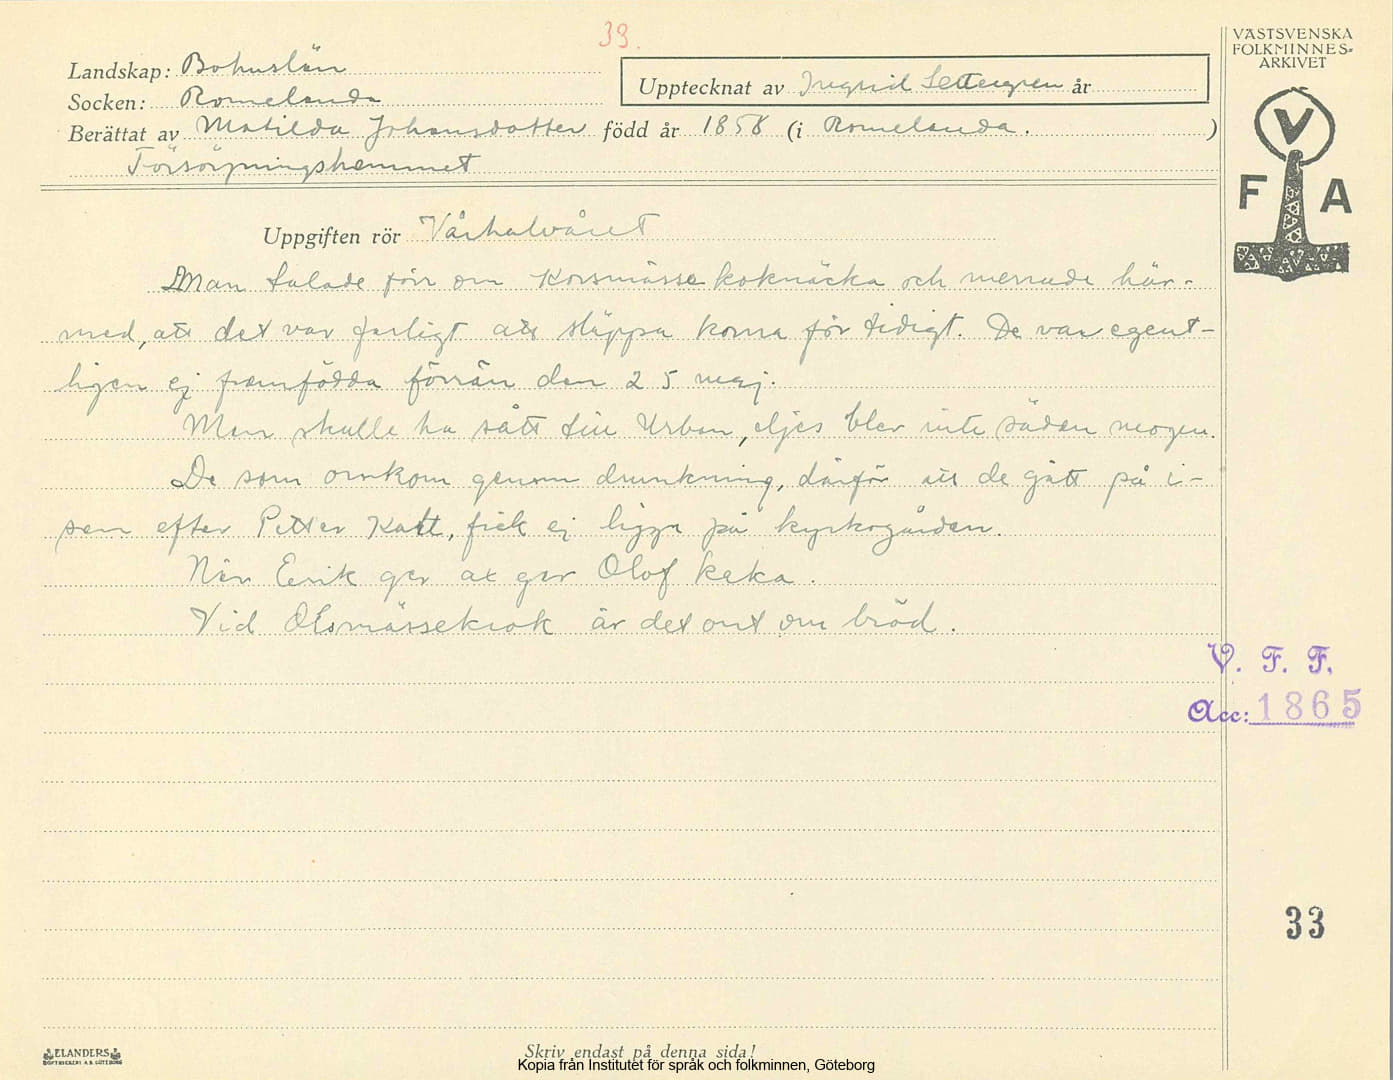 33.
VÄSTSVENSKA
FOLKMINNES-
ARKIVET
Landskap: Bohuslän
Upptecknat av Ingrid Settergren år
Socken: Romelanda
Berättat av Matilda Johansdotter född år 1858 (i Romelanda. )
Försörjningshemmet
V
F A
Uppgiften rör Vårhalvåret
Man talade förr om Korsmässe koknäcka och menade här-
med, att det var farligt att släppa korna för tidigt. De var egent-
ligen ej framfödda förrän den 25 maj.
Man skulle ha sått till Urban, eljes blev inte säden mogen.
De som omkom genom drunkning, därför att de gått på i-
sen efter Petter Katt, fick ej ligga på kyrkogården.
När Erik ger ax ger Olof kaka.
Vid Olsmässekrok är det ont om bröd.
V. F. F.
Acc: 1865
33
ELANDERS
BOKTRYCKERI A.B. GÖTEBORG
Skriv endast på denna sida!
Kopia från Institutet för språk och folkminnen, Göteborg